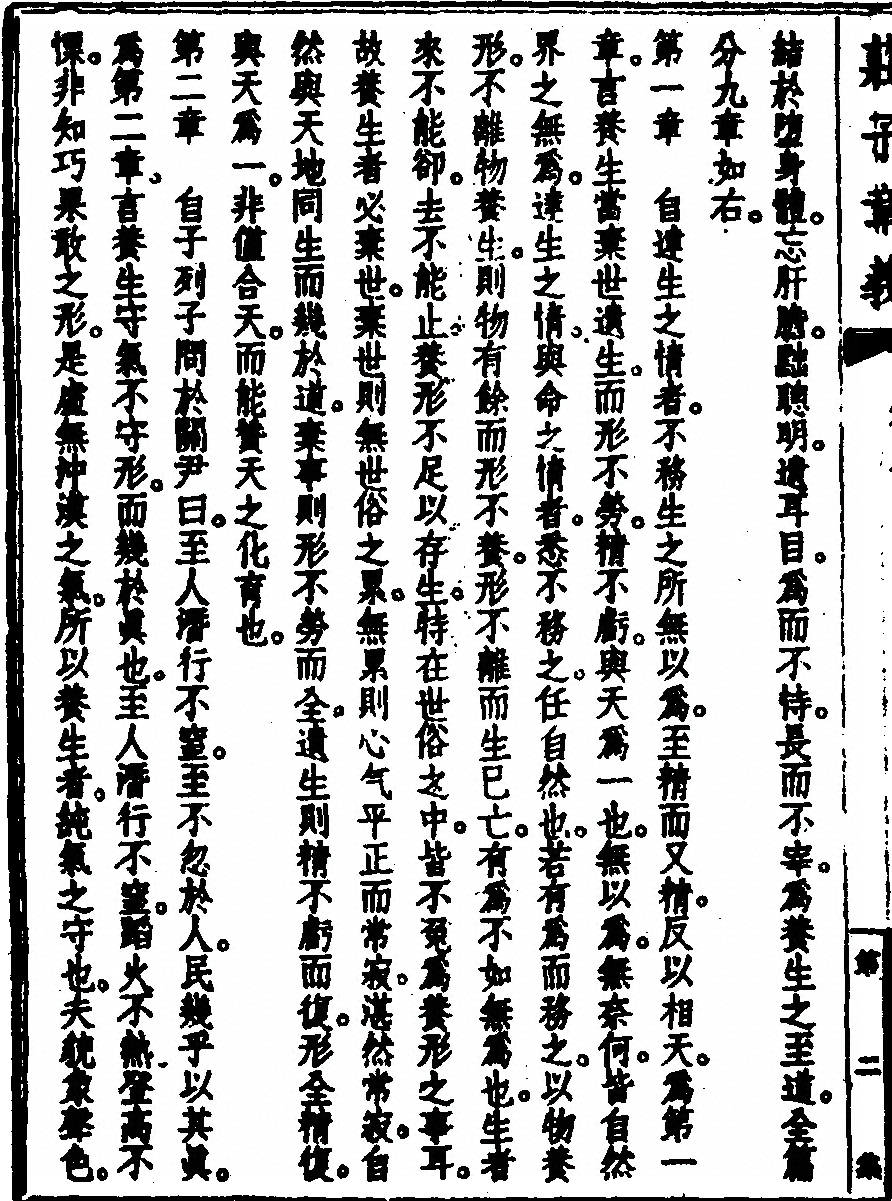 莊子章義
第二集
結於墮身體。忘肝膽。黜聰明。遺耳目。為而不恃。長而不宰。為養生之至道。全篇
分九章如右。
第一章　自達生之情者。不務生之所無以為。至精而又精。反以相天。為第一
章。言養生當棄世遺生。而形不勞。精不虧。與天為一也。無以為。無奈何。皆自然
界之無為。達生之情。與命之情者。悉不務之。任自然也。若有為而務之。以物養
形。不離物養生。則物有餘而形不養。形不離而生已亡。有為不如無為也。生者
來不能卻。去不能止。養形不足以存生。特在世俗之中。皆不免為養形之事耳。
故養生者必棄世。棄世則無世俗之累。無累則心气平正而常寂。湛然常寂。自
然與天地同生而幾於道。棄事則形不勞而全。遺生則精不虧而復。形全精復。
與天為一。非僅合天。而能贊天之化育也。
第二章　自子列子問於關尹曰。至人潛行不窒。至不忽於人。民幾乎以其眞。
為第二章。言養生守氣不守形。而幾於眞也。至人潛行不窒。蹈火不熱。登高不
慄。非知巧果敢之形。是虛無沖漠之氣。所以養生者。純氣之守也。夫貌象聲色。